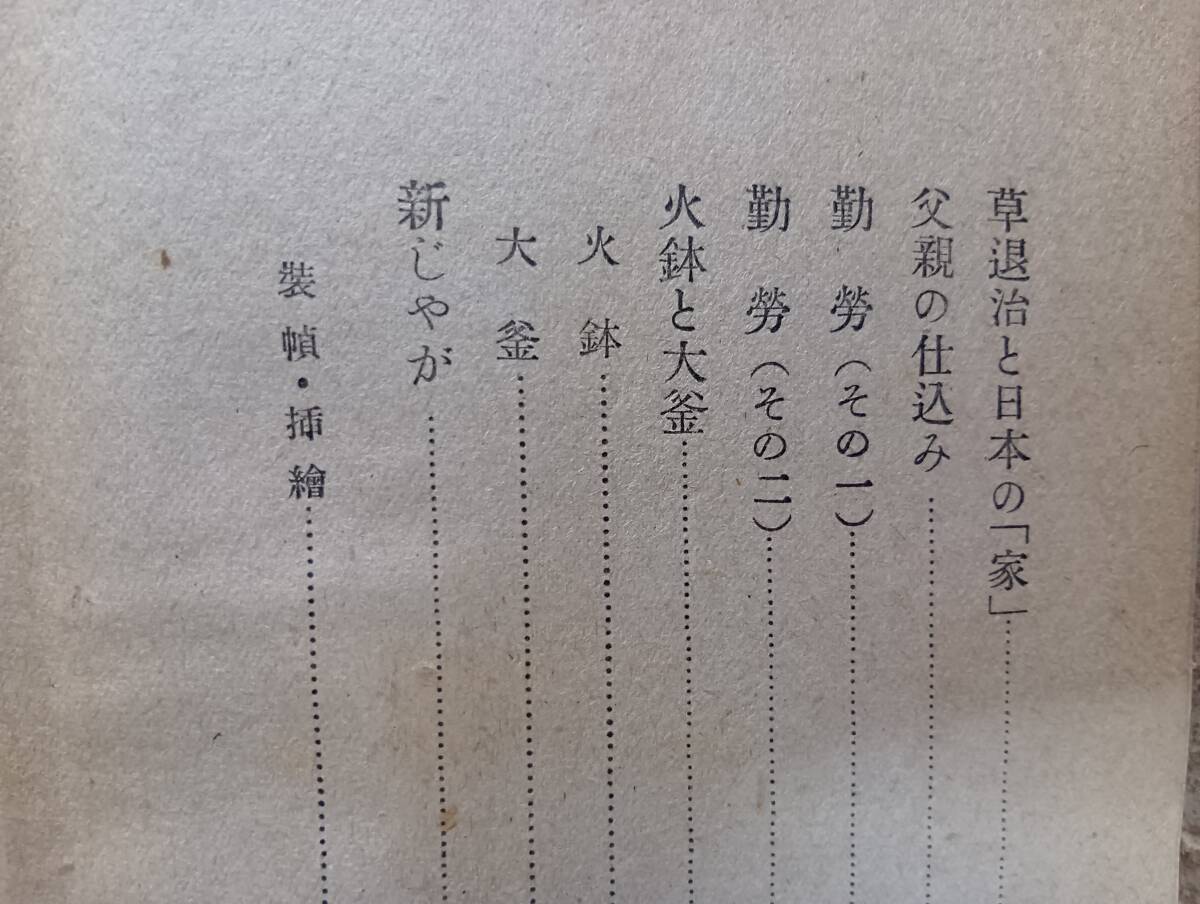 草退治と日本の「家」
父親の仕込み
勤勞(その一)
勤勞(その二)
火鉢と大釜
火鉢
大釜
新じやが
裝幀・挿繪